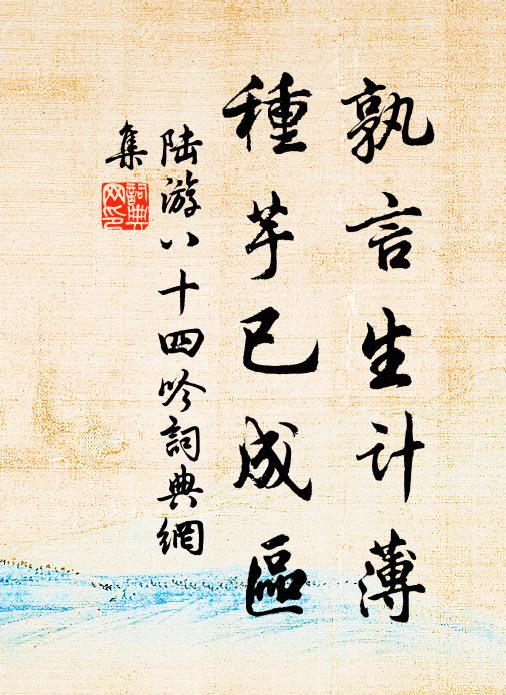 孰言生计薄
種芋已成區
陆游八十四吟詞典網
集
詞典網印